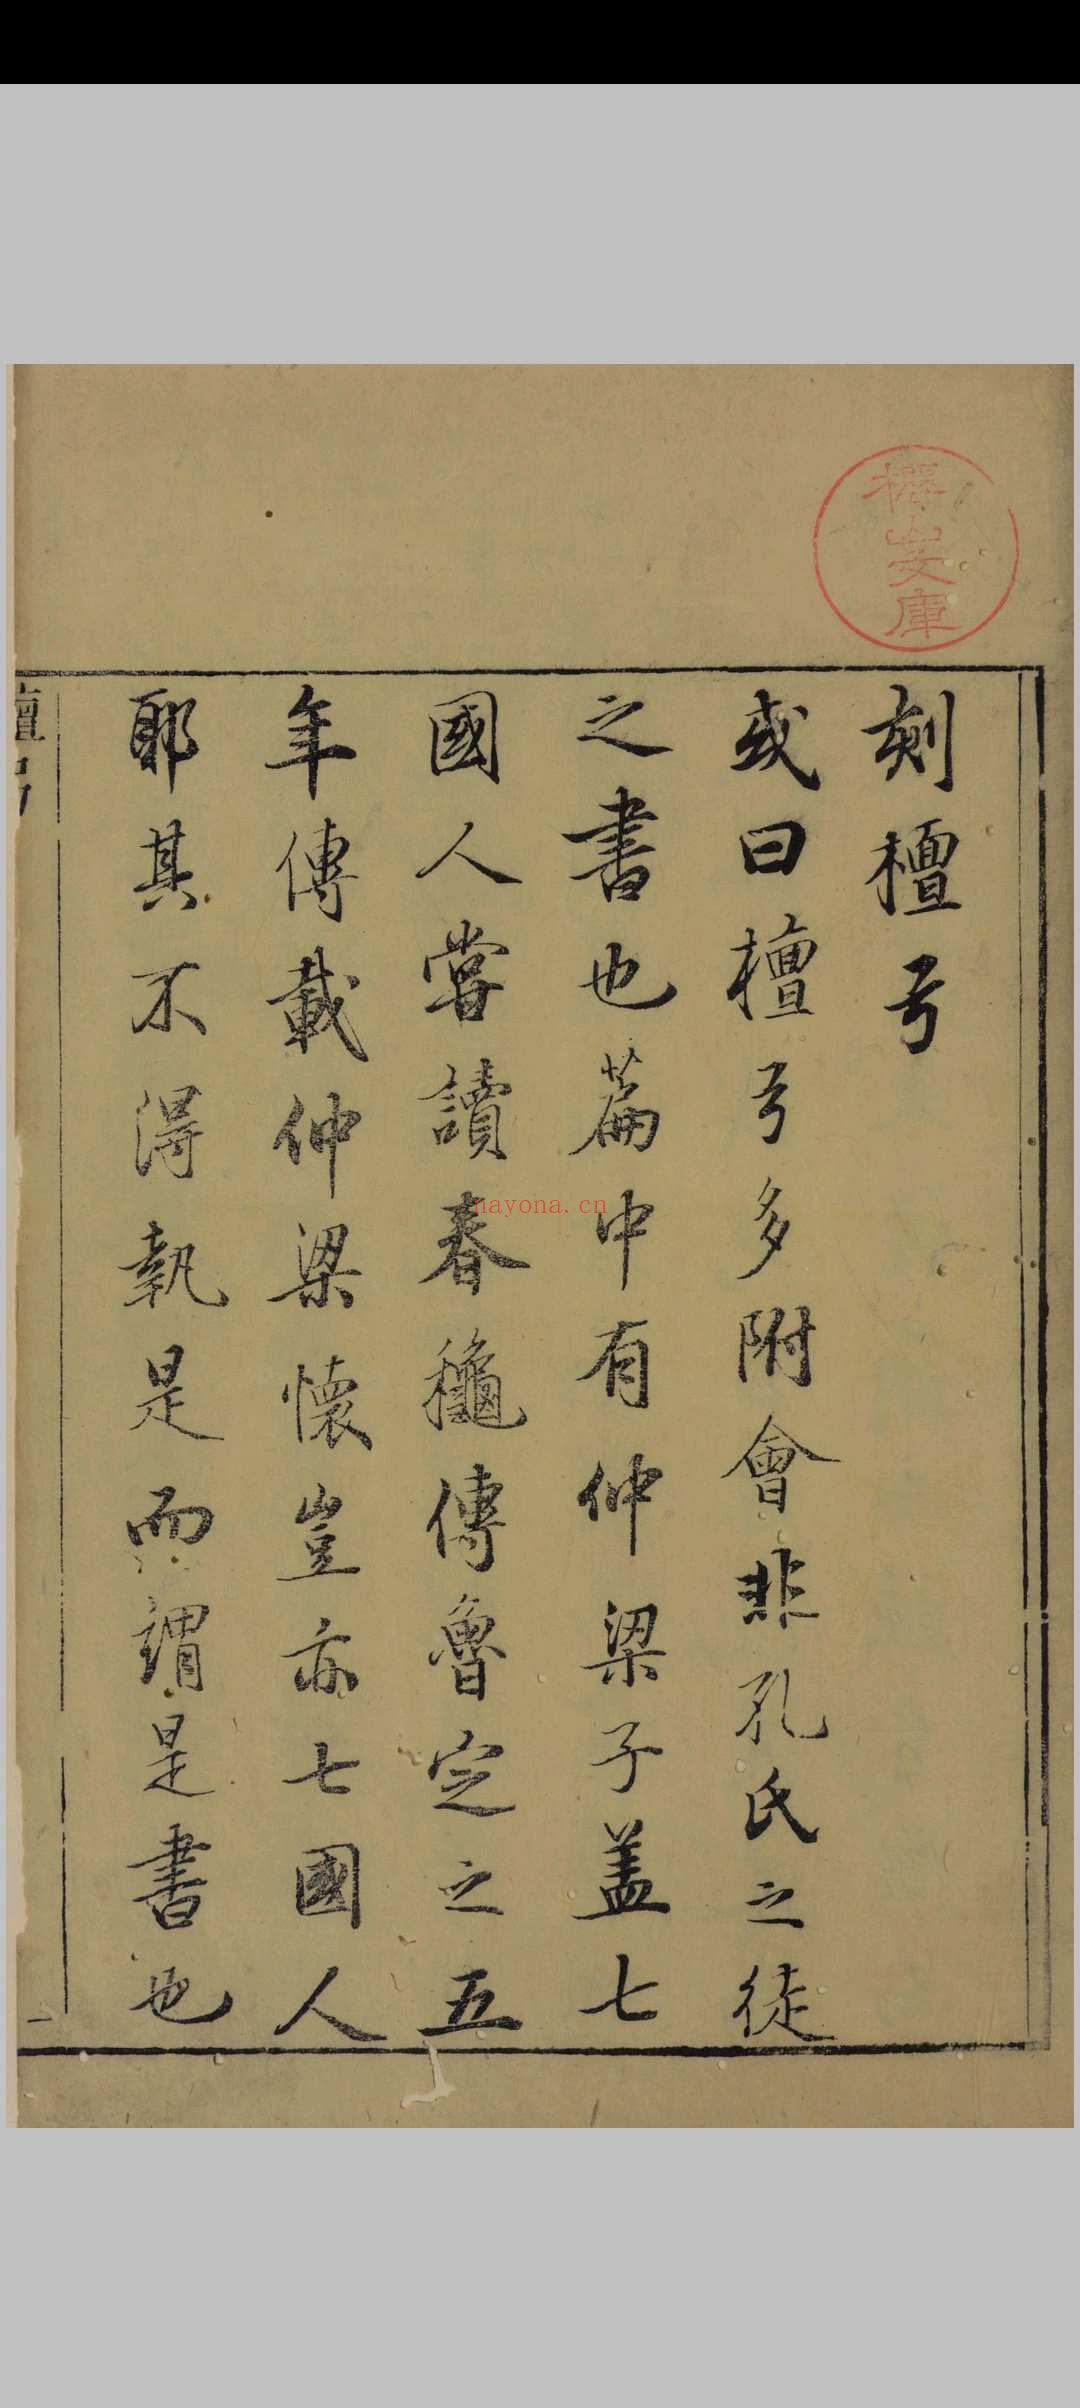 刻檀弓
或曰檀弓多附會非孔氏之徒
之書也篇中有仲梁子盖七
國人嘗讀春龝傳魯定之五
年傳載仲梁懷豈亦七國人
耶其不得執是而謂是書也
檀弓
一
山文庫
nayona.cn